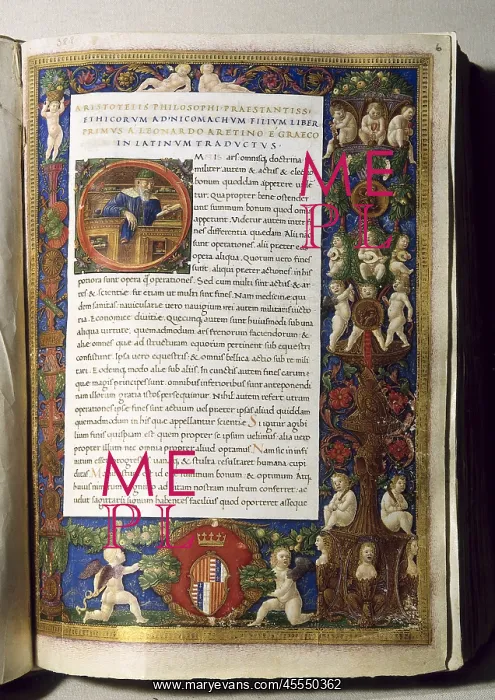 6
ARISTOTELIS PHILOSOPHI PRAESTANTISS·
ETHICORUM AD NICOMACHUM FILIUM LIBER
PRIMUS A LEONARDO ARETINO E GRAECO
IN LATINUM TRADUCTUS·
MNIS ars omnisq; doctrina
militer autem & actus & electio
bonum quoddam appetere
tur. Quapropter bene ostender
unt summum bonum quod om
appetunt. Videtur autem inter
nes differentia quedam. Alii
sunt operationes alii preter
opera aliqua. Quorum vero fines
sunt aliqui preter actiones in his
potiora sunt opera q̃ operationes. Sed cum multi sint actus & ar
tes & scientie sit etiam ut multi sint fines. Nam medicine qui
dem sanitas navicularie vero navigium rei autem militaris victo
ria. Economice divitie. Quecunq; autem sunt huiusmodi sub una
aliqua virtute, quemadmodum ars frenorum faciendorum &
alie omnes que ad structuram equorum pertinent sub equestri
consistunt. Ipsa vero equestris & omnis bellica actio sub re mili
tari. Eodemq; modo alie sub aliis. In cunctis autem fines earum
que magis principes sunt omnibus inferioribus sunt anteponendi
nam illorum gratia ista persequimur. Nihil autem refert utrum
operationes ipse fines sint actuum vel preter ipsas aliud quiddam
quemadmodum in his que appellantur scientie. Si igitur agibi
lium finis quispiam est quem propter se ipsum velimus alia vero
propter illum nec omnia propter aliud optamus. Nam sic in infi
nitum esset & stulta resultaret humana cupi
ditas id bonum & optimum
ad vitam nostram multum conferret ac
velut sagittarii signum habentes facilius quod oporteret asseque
ME
PL
ME
PL
www.maryevans.com/45550362